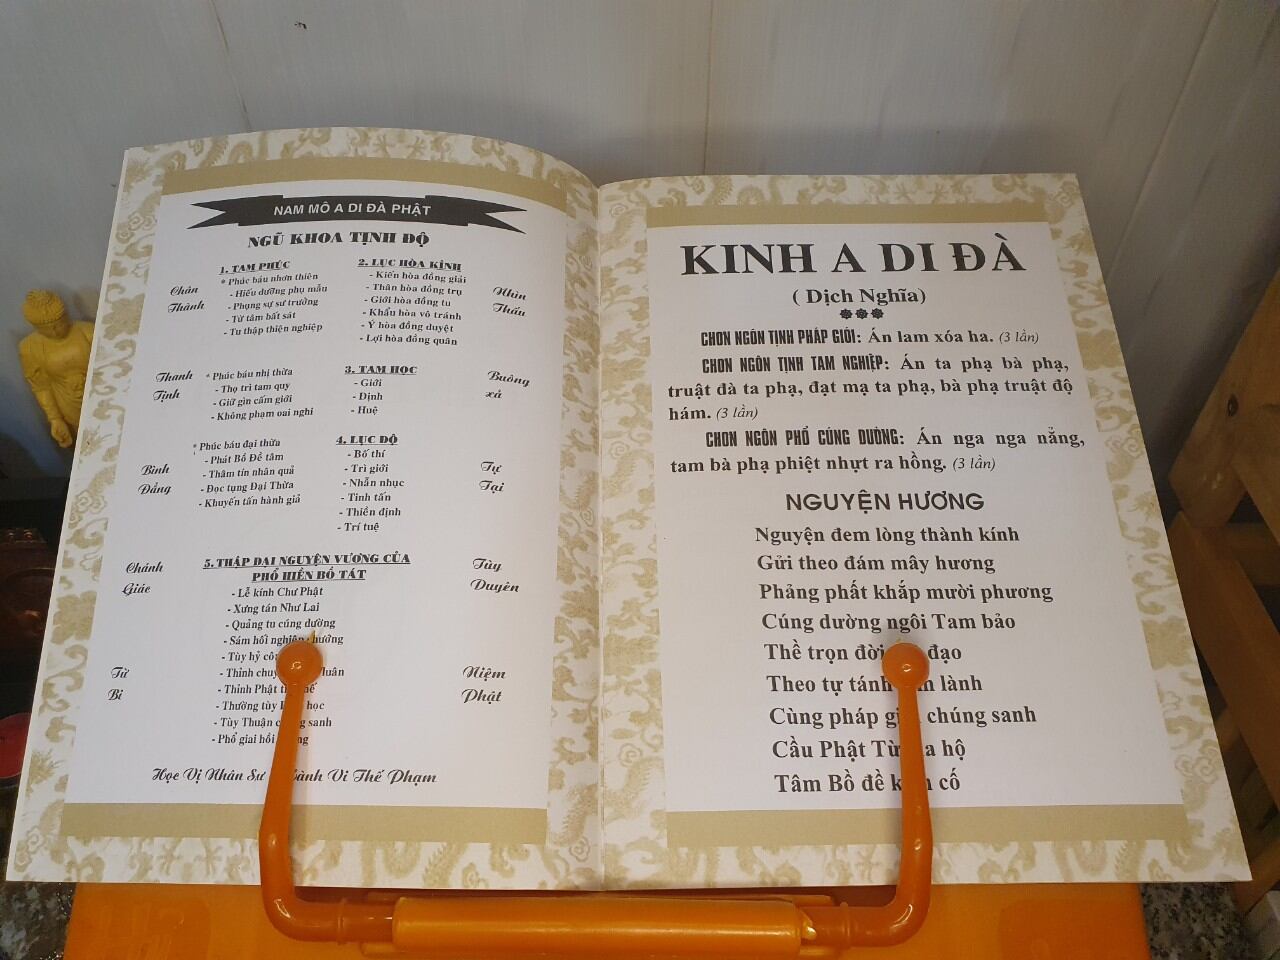 NAM MÔ A DI ĐÀ PHẬT
NGŨ KHOA TỊNH ĐỘ
1. TAM PHÚC
* Phúc báu nhơn thiên
- Hiếu dưỡng phụ mẫu
- Phụng sự sư trưởng
- Từ tâm bất sát
- Tu thập thiện nghiệp
Chân
Thành
* Phúc báu nhị thừa
- Thọ trì tam quy
- Giữ gìn cấm giới
- Không phạm oai nghi
Thanh
Tịnh
* Phúc báu đại thừa
- Phát Bồ Đề tâm
- Thâm tín nhân quả
- Đọc tụng Đại Thừa
- Khuyến tấn hành giả
Bình
Đẳng
2. LỤC HÒA KÍNH
- Kiến hòa đồng giải
- Thân hòa đồng trụ
- Giới hòa đồng tu
- Khẩu hòa vô tránh
- Ý hòa đồng duyệt
- Lợi hòa đồng quân
Nhìn
Thấu
3. TAM HỌC
- Giới
- Định
- Huệ
Buông
xả
4. LỤC ĐỘ
- Bố thí
- Trì giới
- Nhẫn nhục
- Tinh tấn
- Thiền định
- Trí tuệ
Tự
Tại
5. THẬP ĐẠI NGUYỆN VƯƠNG CỦA
PHỔ HIỀN BỒ TÁT
- Lễ kính Chư Phật
- Xưng tán Như Lai
- Quảng tu cúng dường
- Sám hối nghiệp chướng
- Tùy hỷ
- Thỉnh luân
- Thỉnh Phật
- Thường tùy học
- Tùy Thuận sanh
- Phổ giai hồi
Chánh
Giác
Từ
Bi
Tùy
Duyên
Niệm
Phật
Học Vị Nhân Sư Hành Vi Thế Phạm
KINH A DI ĐÀ
( Dịch Nghĩa)
CHƠN NGÔN TỊNH PHÁP GIỚI: Án lam xóa ha. (3 lần)
CHƠN NGÔN TỊNH TAM NGHIỆP: Án ta phạ bà phạ,
truật đà ta phạ, đạt mạ ta phạ, bà phạ truật độ
hám. (3 lần)
CHƠN NGÔN PHỔ CÚNG DƯỜNG: Án nga nga nẳng,
tam bà phạ phiệt nhựt ra hồng. (3 lần)
NGUYỆN HƯƠNG
Nguyện đem lòng thành kính
Gửi theo đám mây hương
Phảng phất khắp mười phương
Cúng dường ngôi Tam bảo
Thề trọn đời đạo
Theo tự tánh lành
Cùng pháp chúng sanh
Cầu Phật Từ hộ
Tâm Bồ đề cố